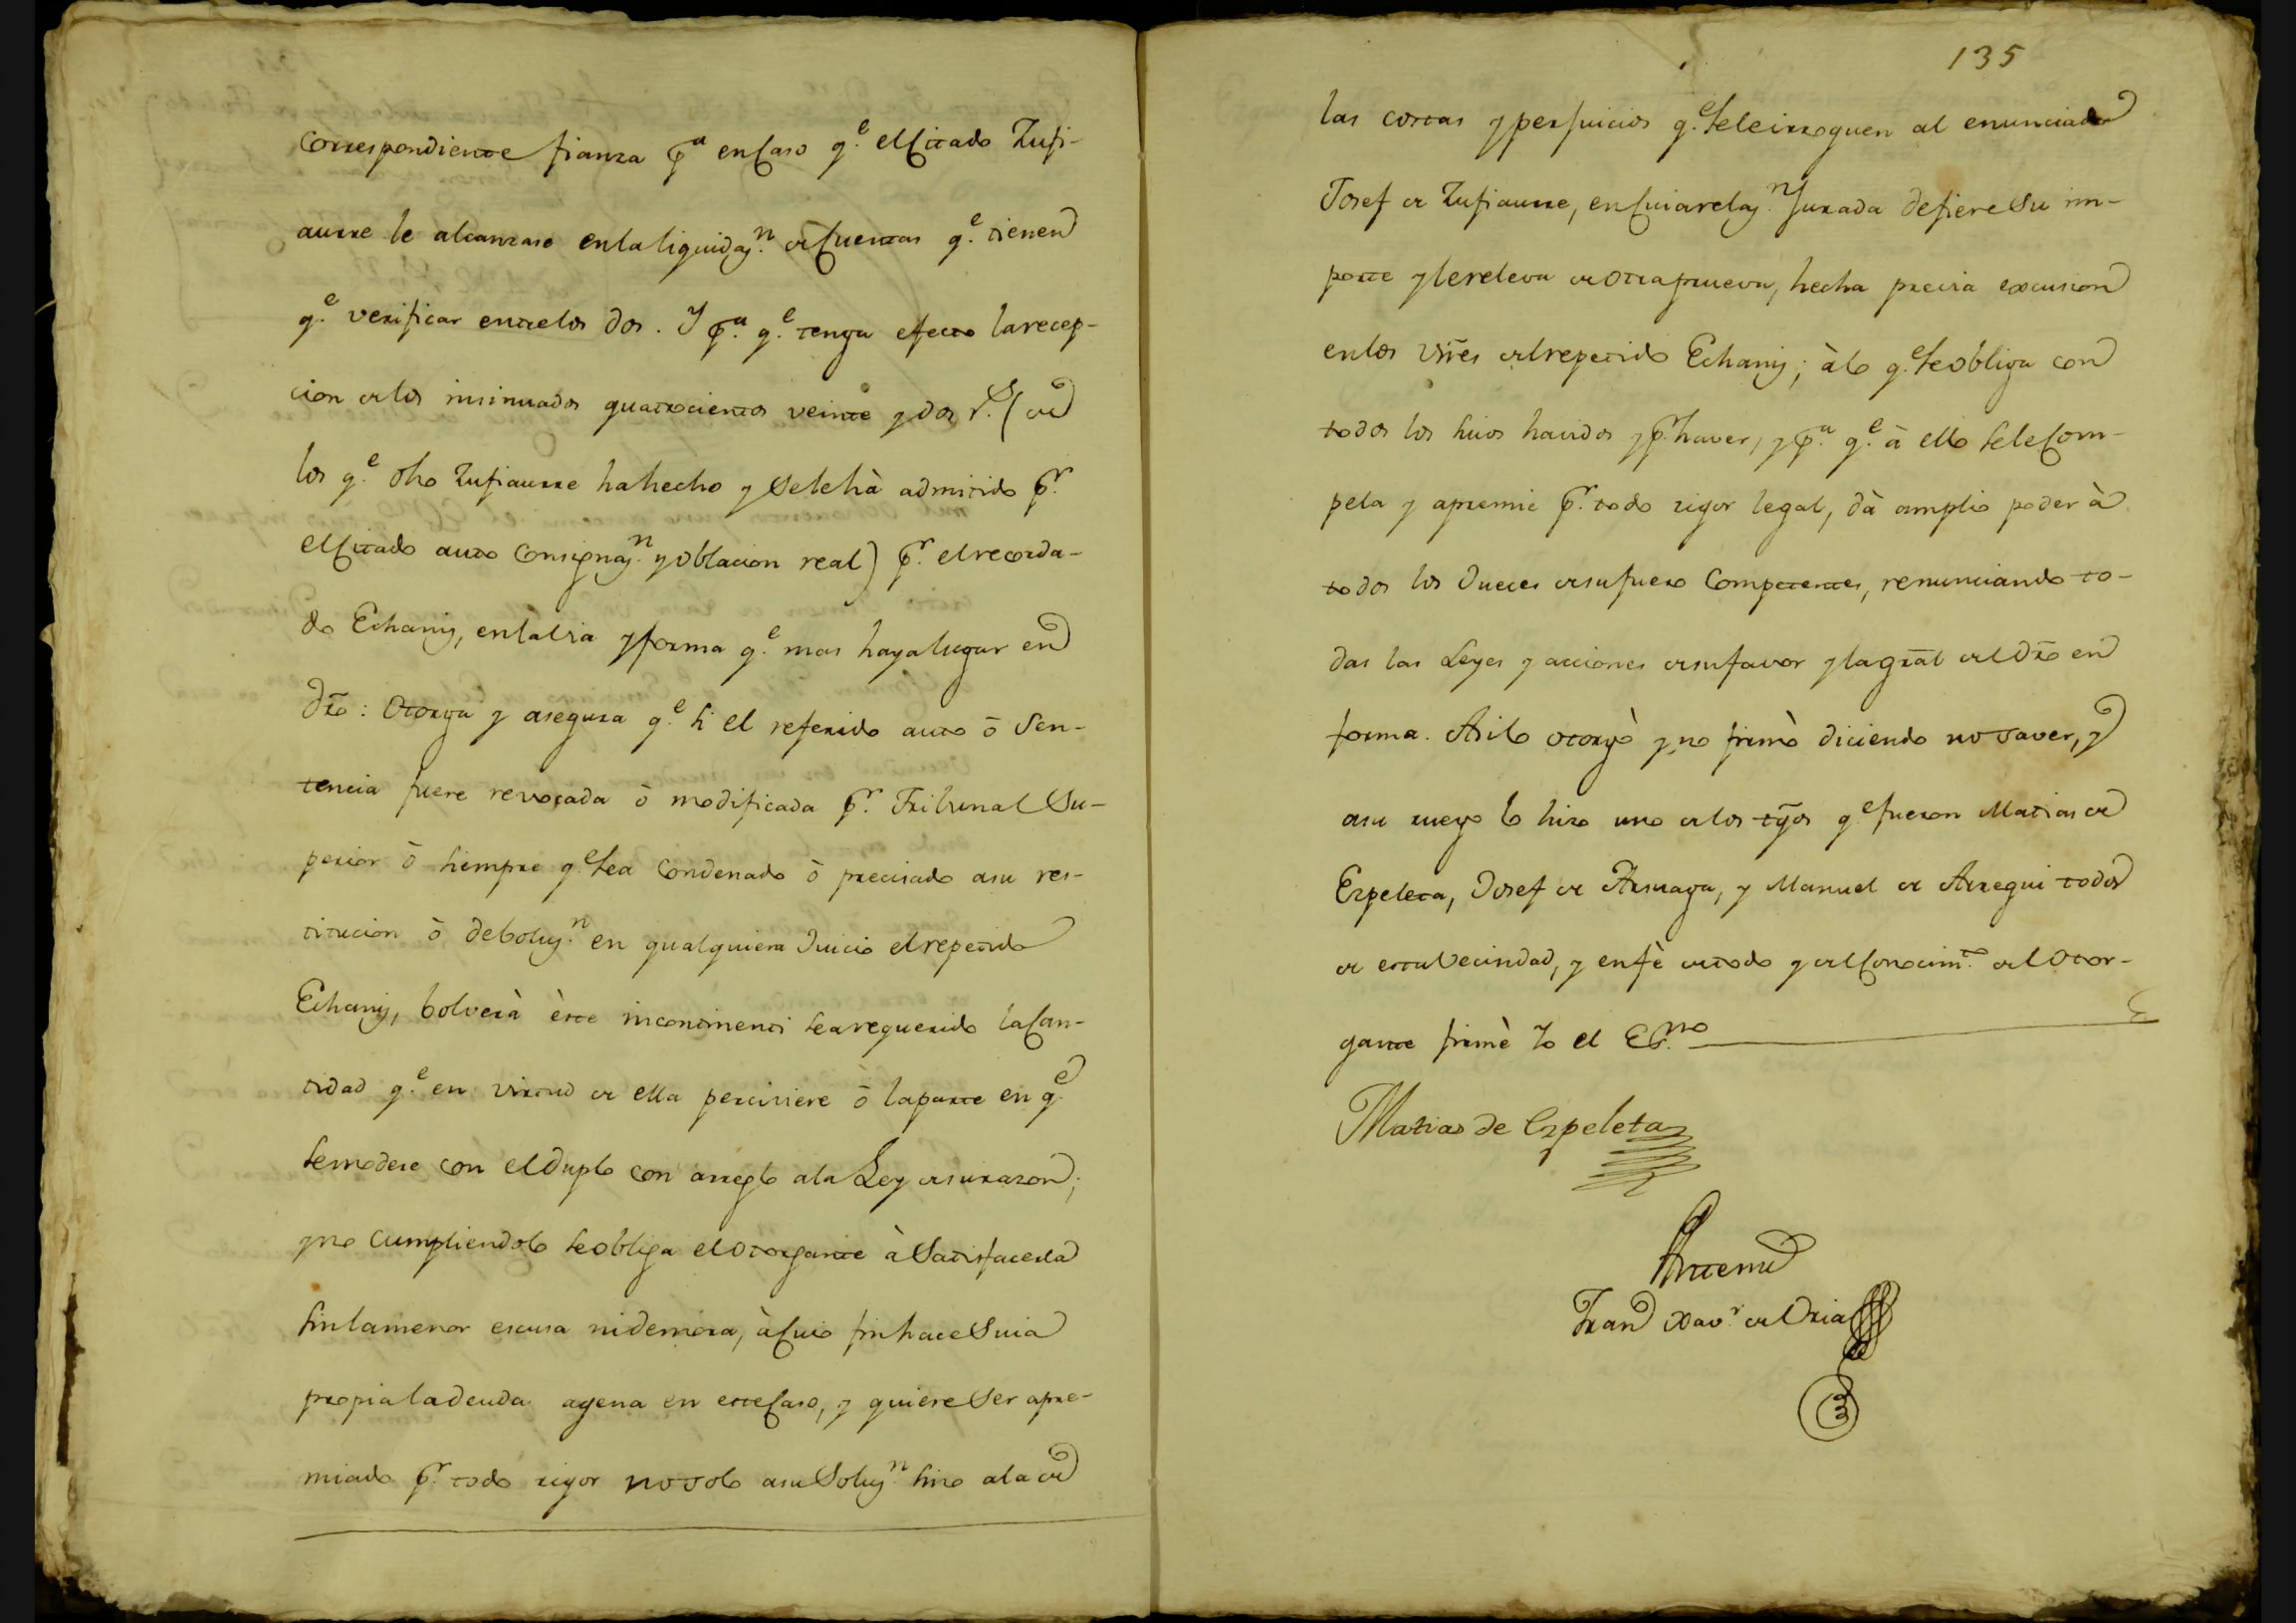 correspondiente fianza p.ª en caso q.e el citado Zufi-
aurre le alcanzase en la liquidaz.n de cuentas q.e tienen
q.e verificar entre los dos. Y p.ª q.e tenga efecto la recep-
cion de los insinuados quatrocientos veinte y dos r.s (de
los q.e dho Zufiaurre ha hecho y se le hà admitido p.r
el citado auto consignaz.n y oblacion real) p.r el recorda-
do Echaniz, en la via y forma q.e mas haya lugar en
dro: Otorga y asegura q.e si el referido auto ò sen-
tencia fuere revocada ò modificada p.r Tribunal Su-
perior ò siempre q.e sea condenado ò precisado a su res-
titucion ò deboluz.n en qualquiera Juicio el repetido
Echaniz, bolverà èste incontinenti sea requerido la can-
tidad q.e en virtud de ella perciviere ò la parte en q.e
se modere con el duplo con arreglo a la Ley de su razon;
y no cumpliendolo se obliga el otorgante à satisfacerla
sin la menor escusa ni demora, à cuio fin hace suia
propia la deuda agena en este caso, y quiere ser apre-
miado p.r todo rigor no solo a su soluz.n sino a la de
135
las costas y perjuicios q.e se le irroguen al enunciado
Josef de Zufiaurre, en cuia relaz.n Jurada defiere su im-
porte y le releva de otra prueva, hecha previa excusion
en los vnes del repetido Echaniz; à lo q.e se obliga con
todos los suios havidos y p.r haver, y p.ª q.e à ello se le com-
pela y apremie p.r todo rigor legal, dà amplio poder à
todos los Jueces de su fuero competentes, renunciando to-
das las Leyes y acciones de su favor y la gral del dro en
forma. Asi lo otorgò y no firmò diciendo no saver, y
a su ruego lo hizo uno de los tgos q.e fueron Matias de
Ezpeleta, Josef de Arsuaga, y Manuel de Arregui todos
de esta vecindad, y en fè de todo y del conocim.to del otor-
gante firmè Yo el Es.no
Matias de Ezpeleta
Antemi
Fran Xav.r de Oria